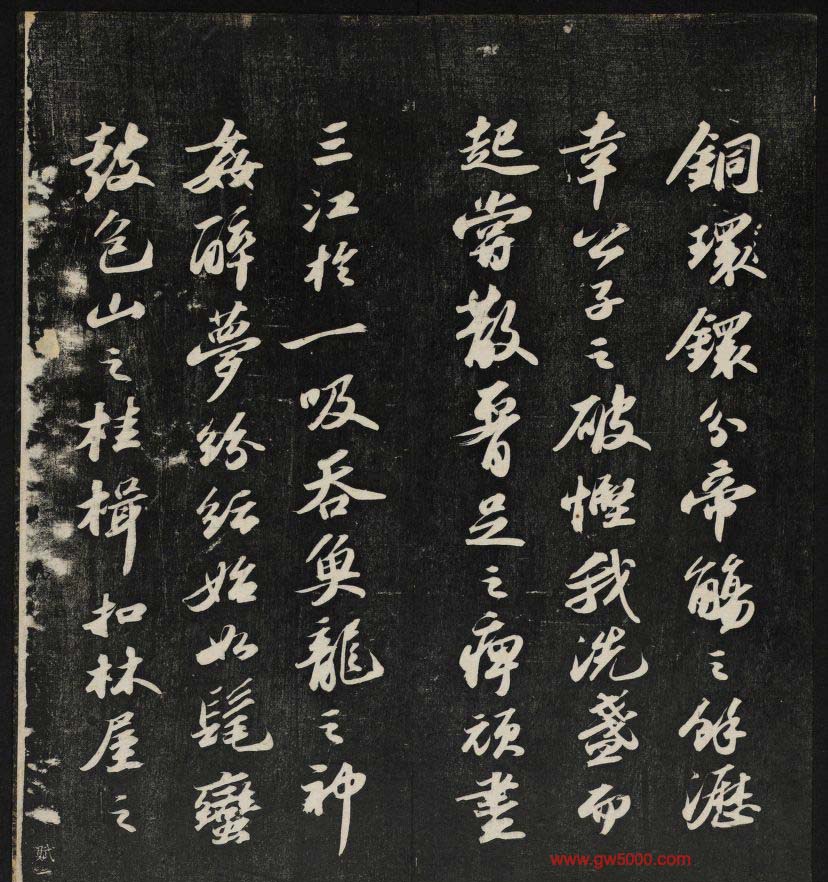 銅環鐶分帝觴之餘瀝
幸公子之破慳我洗盞而
起嘗散腰足之痺頑盡
三江於一吸吞魚龍之神
姦醉夢紛紜始如髦蠻
鼓包山之桂楫扣林屋之
賦
www.gw5000.com